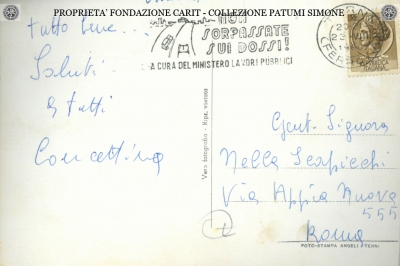 PROPRIETA' FONDAZIONE CARIT - COLLEZIONE PATUMI SIMONE
NON
SORPASSATE
SUI DOSSI!
A CURA DEL MINISTERO LAVORI PUBBLICI
tutto bene...
Saluti
a tutti
Concettina
Vera fotografia - Ripr. vietata
Gent. Signora
Nella Scapicchi
Via Appia Nuova
555
Roma
FOTO-STAMPA ANGELI - TERNI